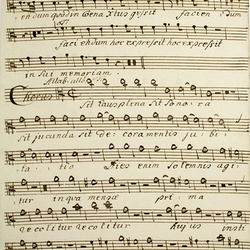 endum quod in Cena Xtus gessit facien dum
faciendum hoc expressit hoc expressit
in sui memoriam.
Allab: all:
Chorus
Sit laus plena sit sonora
sit jucunda sit decora mentis jubi-
latio Dies enim solemnis agi-
tur in qua mensæ prima
recolitur recolitur hujus insti